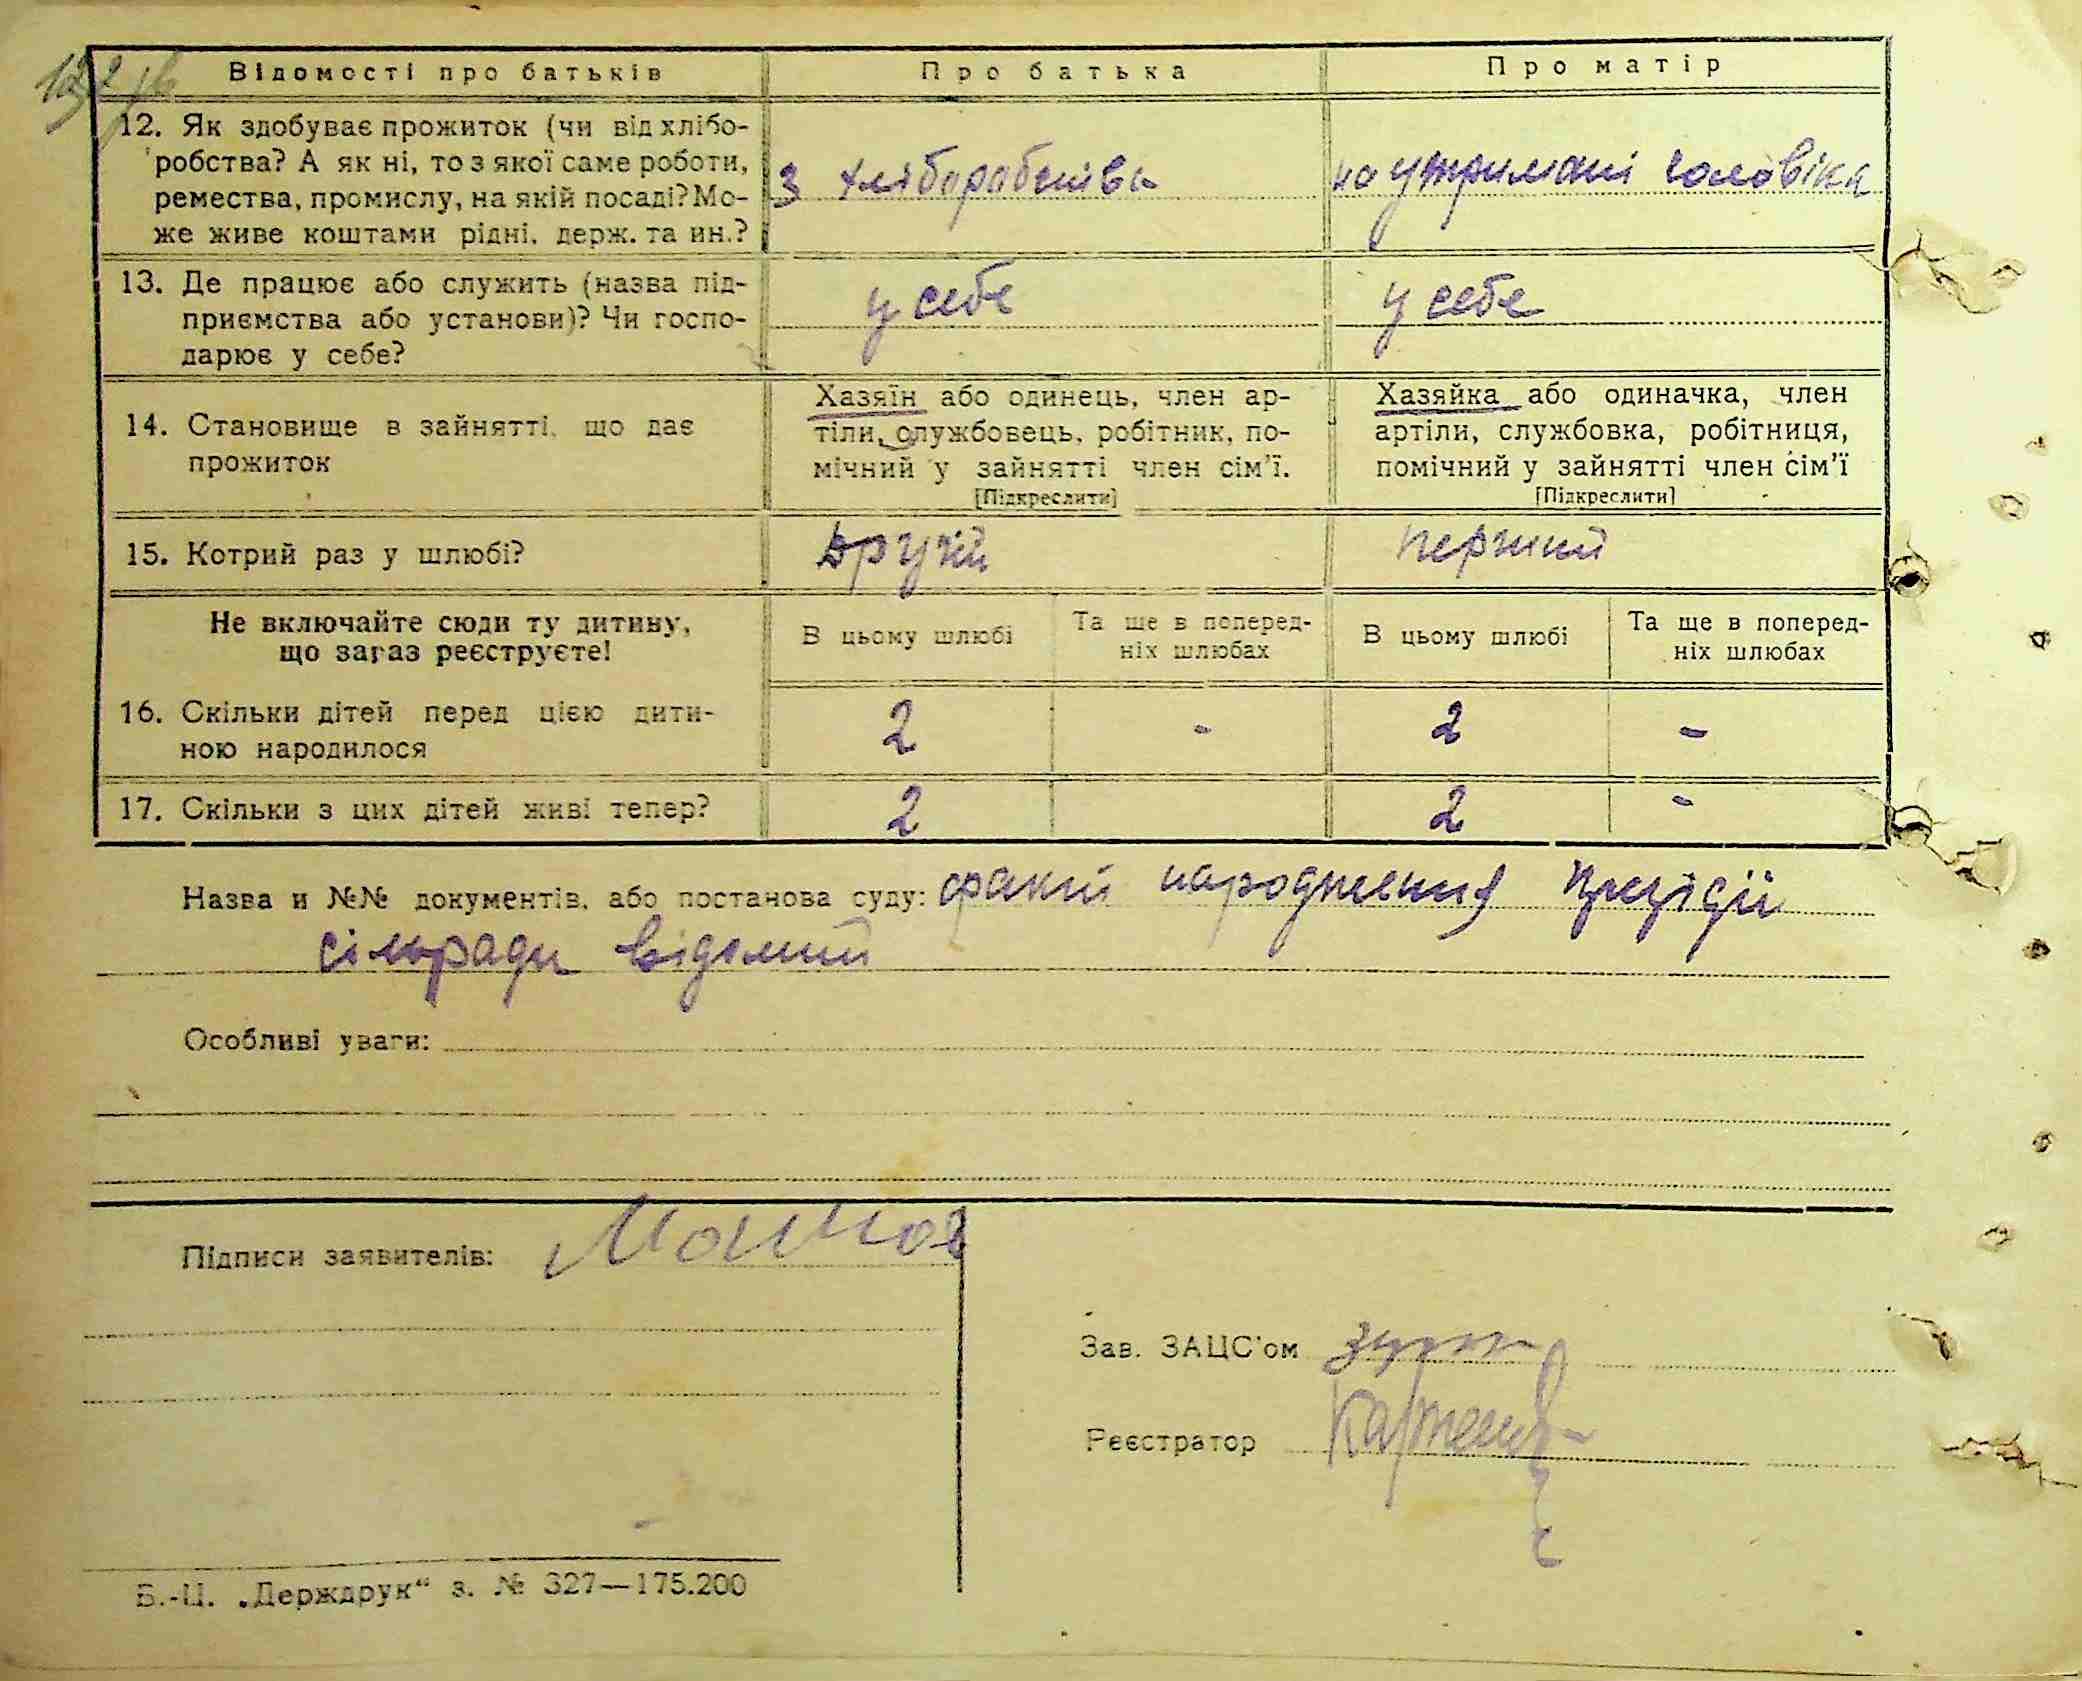 Відомості про батьків
Про батька
Про матір
12. Як здобуває прожиток (чи від хлібо-
робства? А як ні, то з якої саме роботи,
ремества, промислу, на якій посаді? Мо-
же живе коштами рідні, держ. та ин.?
з хліборобства
на утримані чоловіка
13. Де працює або служить (назва під-
приємства або установи)? Чи госпо-
дарює у себе?
у себе
у себе
14. Становище в зайнятті, що дає
прожиток
Хазяїн або одинець, член ар-
тіли, службовець, робітник, по-
мічний у зайнятті член сім'ї.
[Підкреслити]
Хазяйка або одиначка, член
артіли, службовка, робітниця,
помічний у зайнятті член сім'ї
[Підкреслити]
15. Котрий раз у шлюбі?
другий
перший
Не включайте сюди ту дитину,
що зараз реєструєте!
В цьому шлюбі
Та ше в поперед-
ніх шлюбах
В цьому шлюбі
Та ще в поперед-
ніх шлюбах
16. Скільки дітей перед цією дити-
ною народилося
2
-
2
-
17. Скільки з цих дітей живі тепер?
2
2
-
Назва и №№ документів, або постанова суду: факт народження президії
сільради відомий
Особливі уваги:
Підписи заявителів:
Зав. ЗАЦС'ом
Реєстратор
Б.-Ц. „Держдрук“ з. № 327—175.200